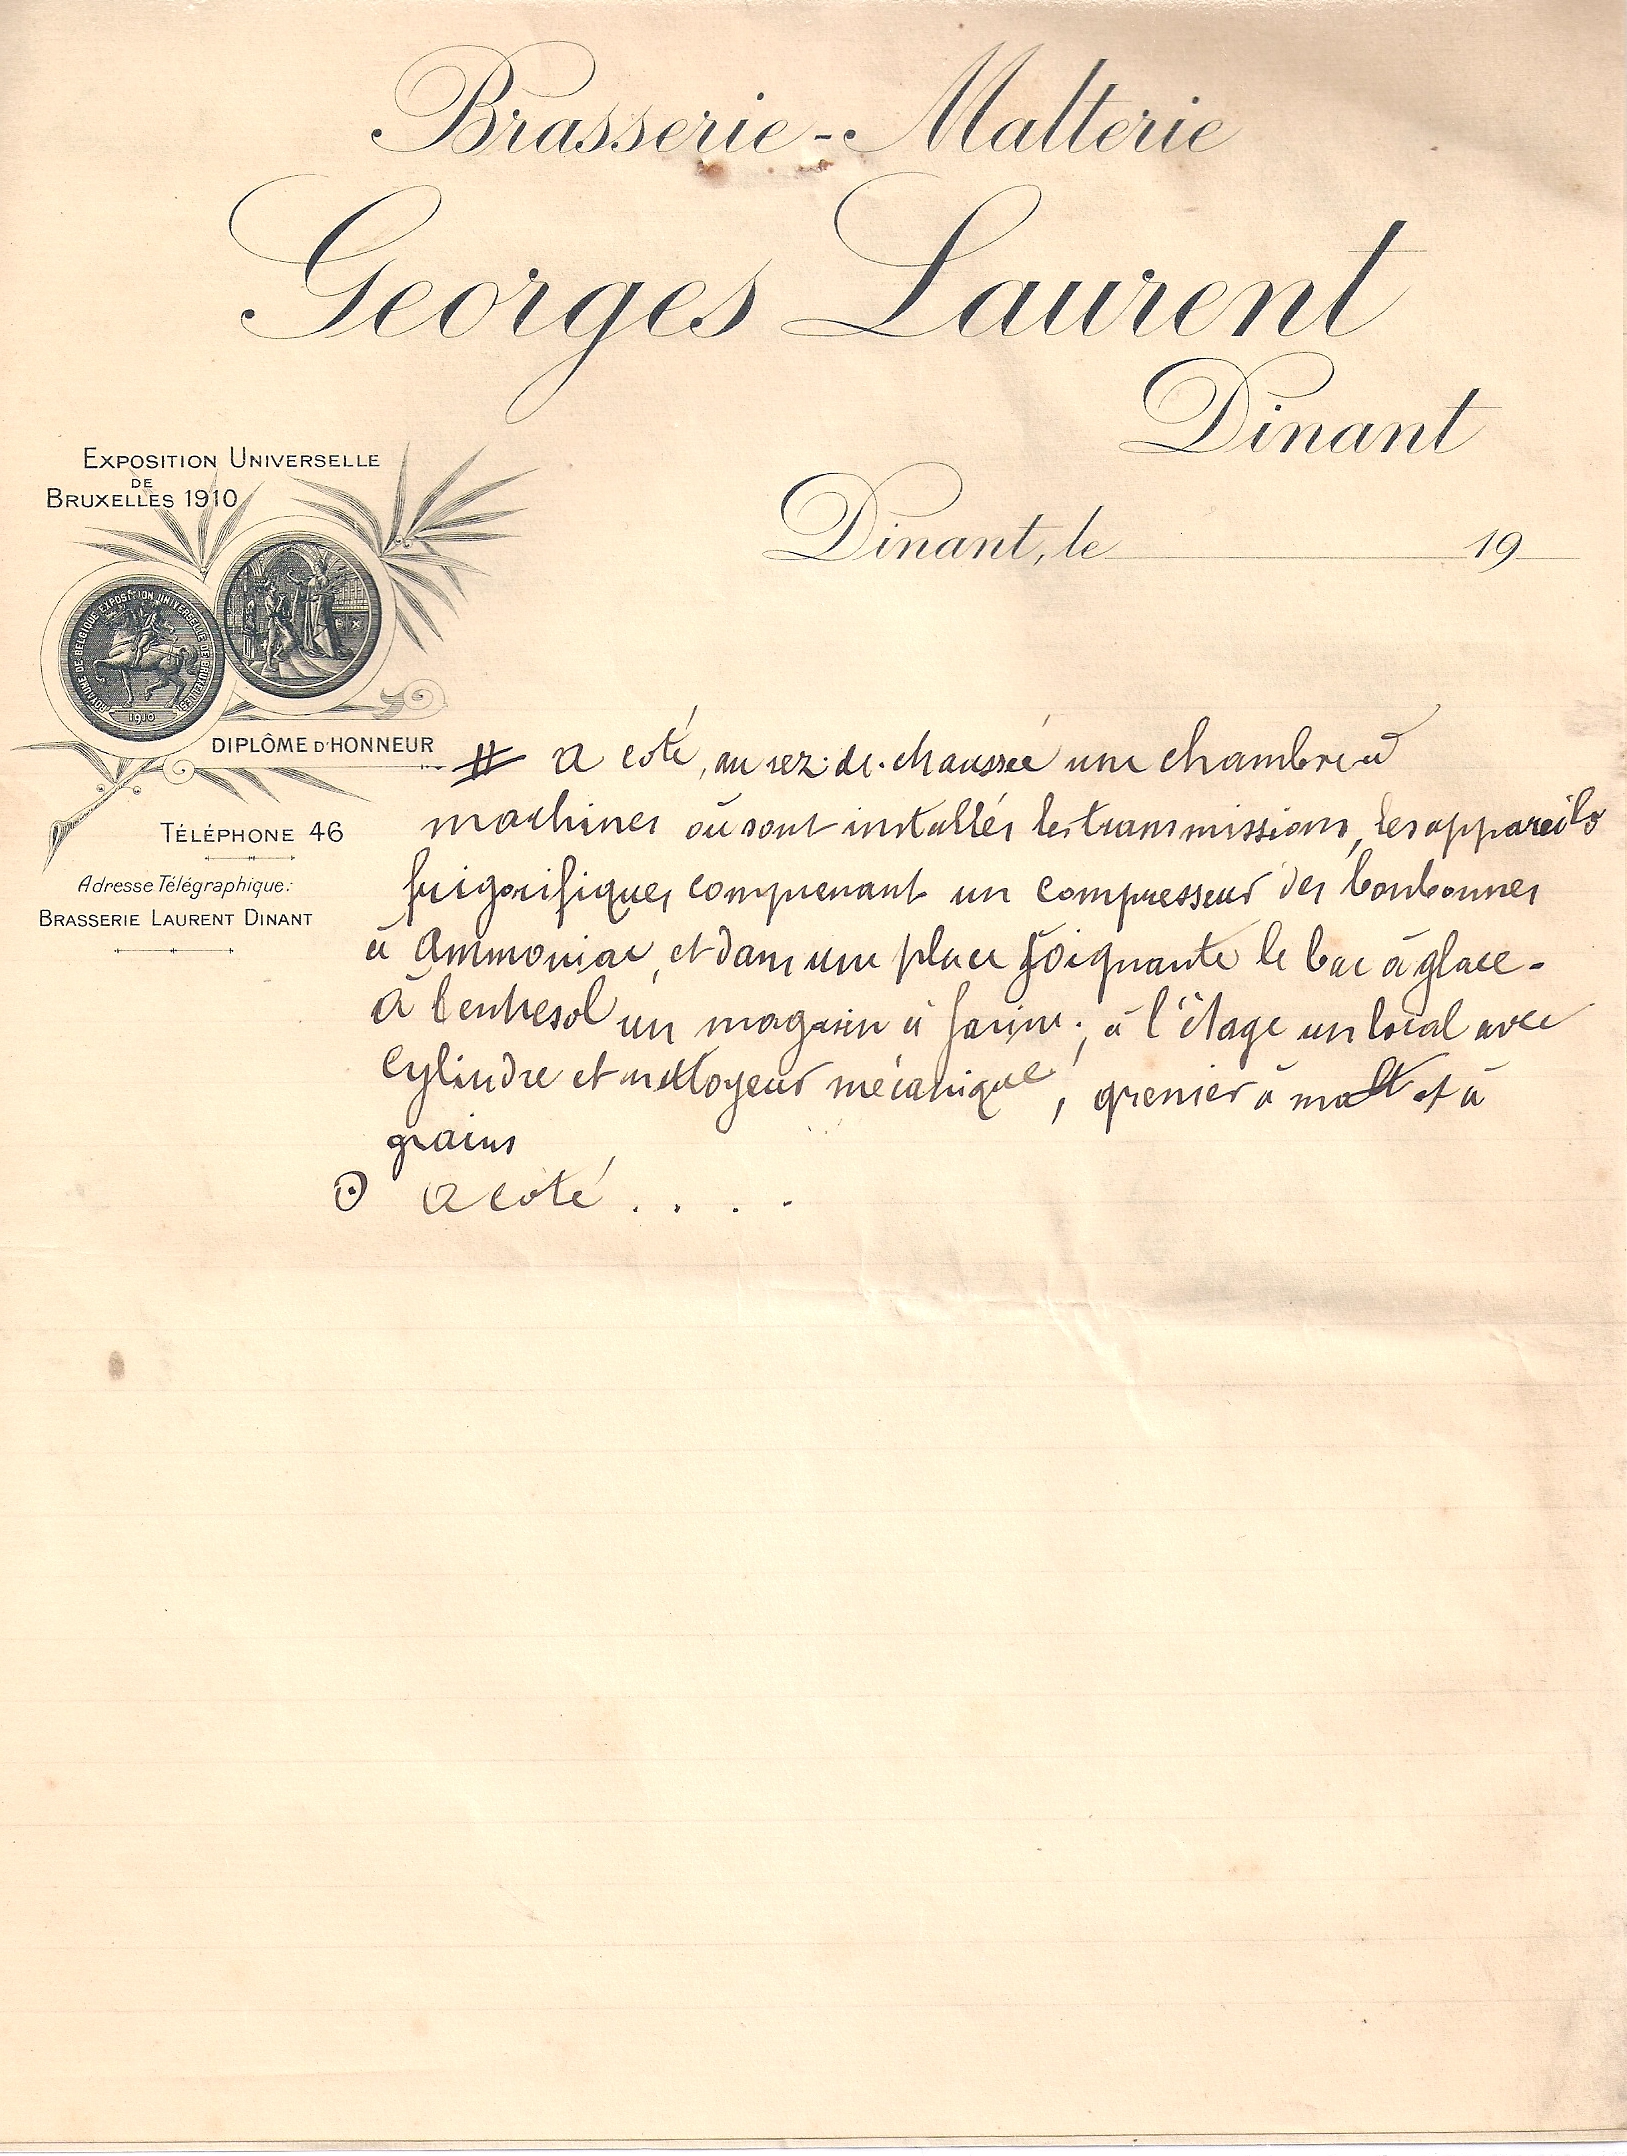 Brasserie - Malterie
Georges Laurent
Dinant
EXPOSITION UNIVERSELLE
DE
BRUXELLES 1910
Dinant, le 19
ROYAUME DE BELGIQUE EXPOSITION UNIVERSELLE DE BRUXELLES
1910
DIPLÔME D'HONNEUR
TÉLÉPHONE 46
Adresse Télégraphique:
BRASSERIE LAURENT DINANT
# a coté, au rez-de-chaussée une chambre à
machines où sont installés les transmissions, les appareils
frigorifiques comprenant un compresseur des bonbonnes
à Ammoniac, et dans une place joignante le bac à glace -
à l'entresol un magasin à farine; à l'étage un local avec
cylindre et nettoyeur mécanique, grenier à malt et à
grains
⊙ a coté . . . .